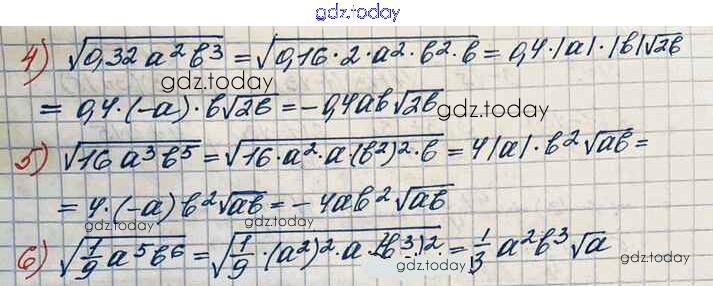 gdz.today
4) √(0,32 a²b³) = √(0,16·2·a²·b²·b) = 0,4·|a|·|b|√(2b)
gdz.today
= 0,4·(-a)·b√(2b) = -0,4ab√(2b)
gdz.today
5) √(16 a³b⁵) = √(16·a²·a·(b²)²·b) = 4|a|·b²√(ab) =
= 4·(-a) b²√(ab) = -4ab²√(ab)
gdz.today
6) √(1/9 a⁵b⁶) = √(1/9·(a²)²·a·(b³)²) = 1/3 a²b³√a
gdz.today
gdz.today